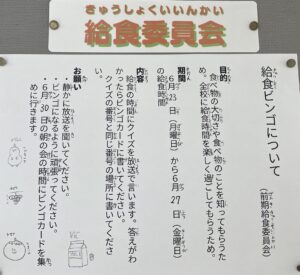 きゅうしょくいいんかい
給食委員会
給食ビンゴについて
（前期給食委員会）
目的
食べ物の大切さや食べ物のことを知ってもらうた
め。全校に給食時間を楽しく過ごしてもらうため。
期間
6月23日（月曜日）から6月27日（金曜日）
の給食時間
内容
給食の時間にクイズを放送で言います。答えがわ
かったらビンゴカードに書いてください。
クイズの番号と同じ番号の場所に書いてくださ
い。
お願い
・静かに放送を聞いてください。
・ビンゴになるように頑張ってください。
・6月30日の朝の会の時間にビンゴカードを集
めに行きます。